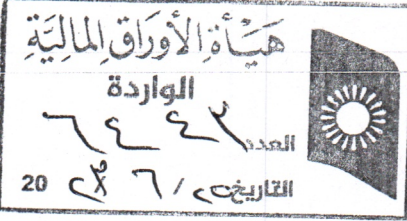 هَيْأَةِ الأَوْرَاقِ المَالِيَّةِ
الواردة
العدد ٦٤٤٣
التاريخ / ٦ / 20